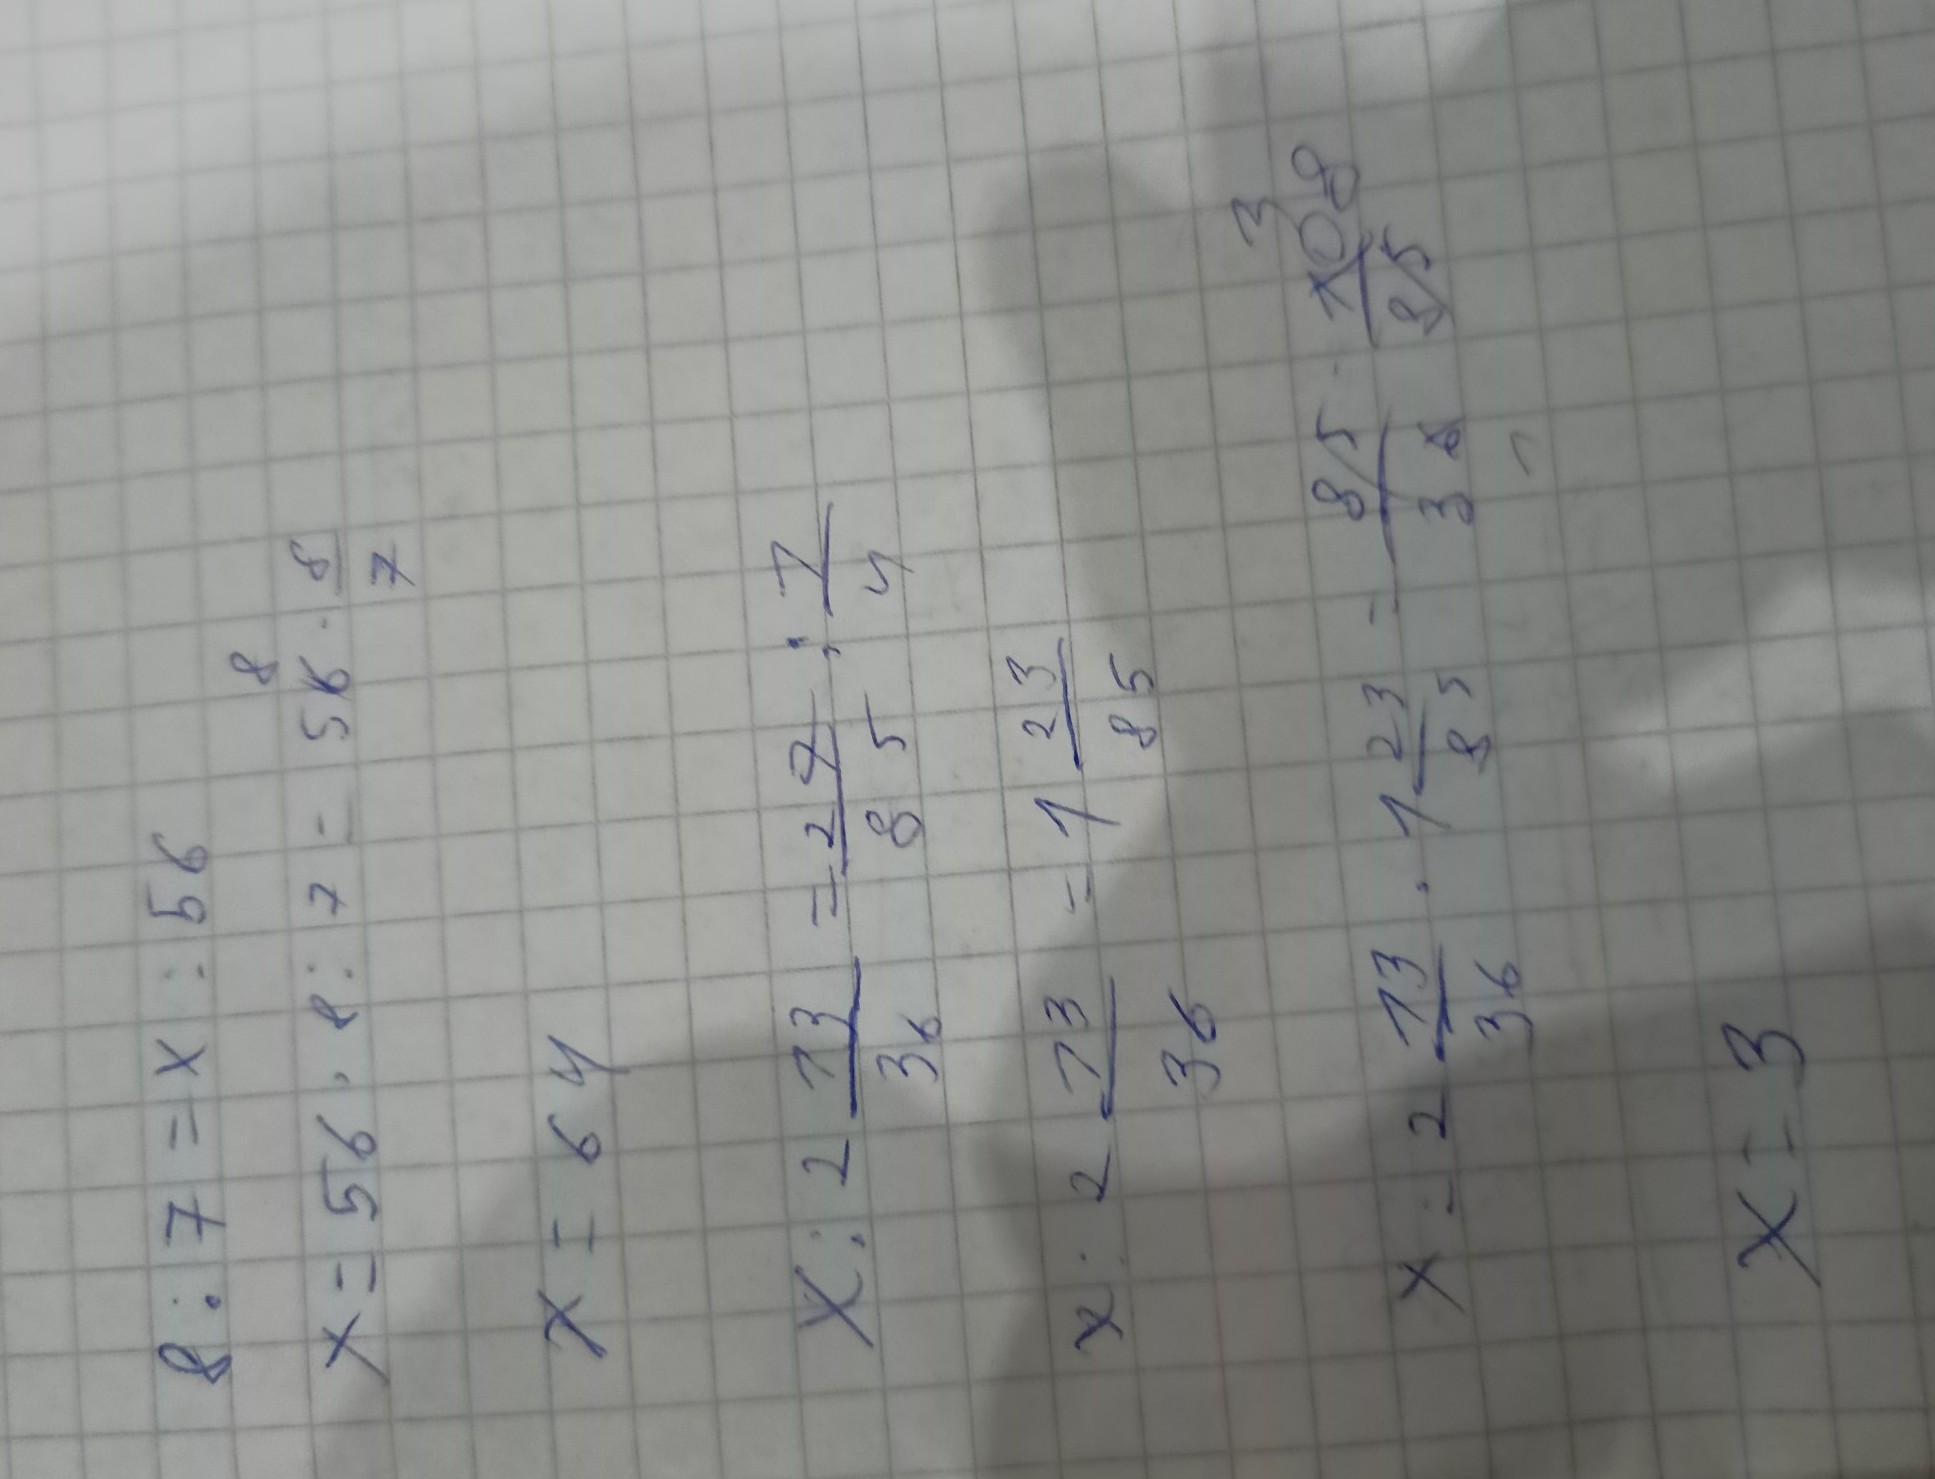 8 : 7 = x : 56
x = 56 · 8 : 7 = 56 · 8/7 8
x = 64
x : 2 13/36 = 27/85 : 7/4
x : 2 13/36 = 1 23/85
x = 2 13/36 · 1 23/85 = 85/36 · 108/85 3 1
x = 3